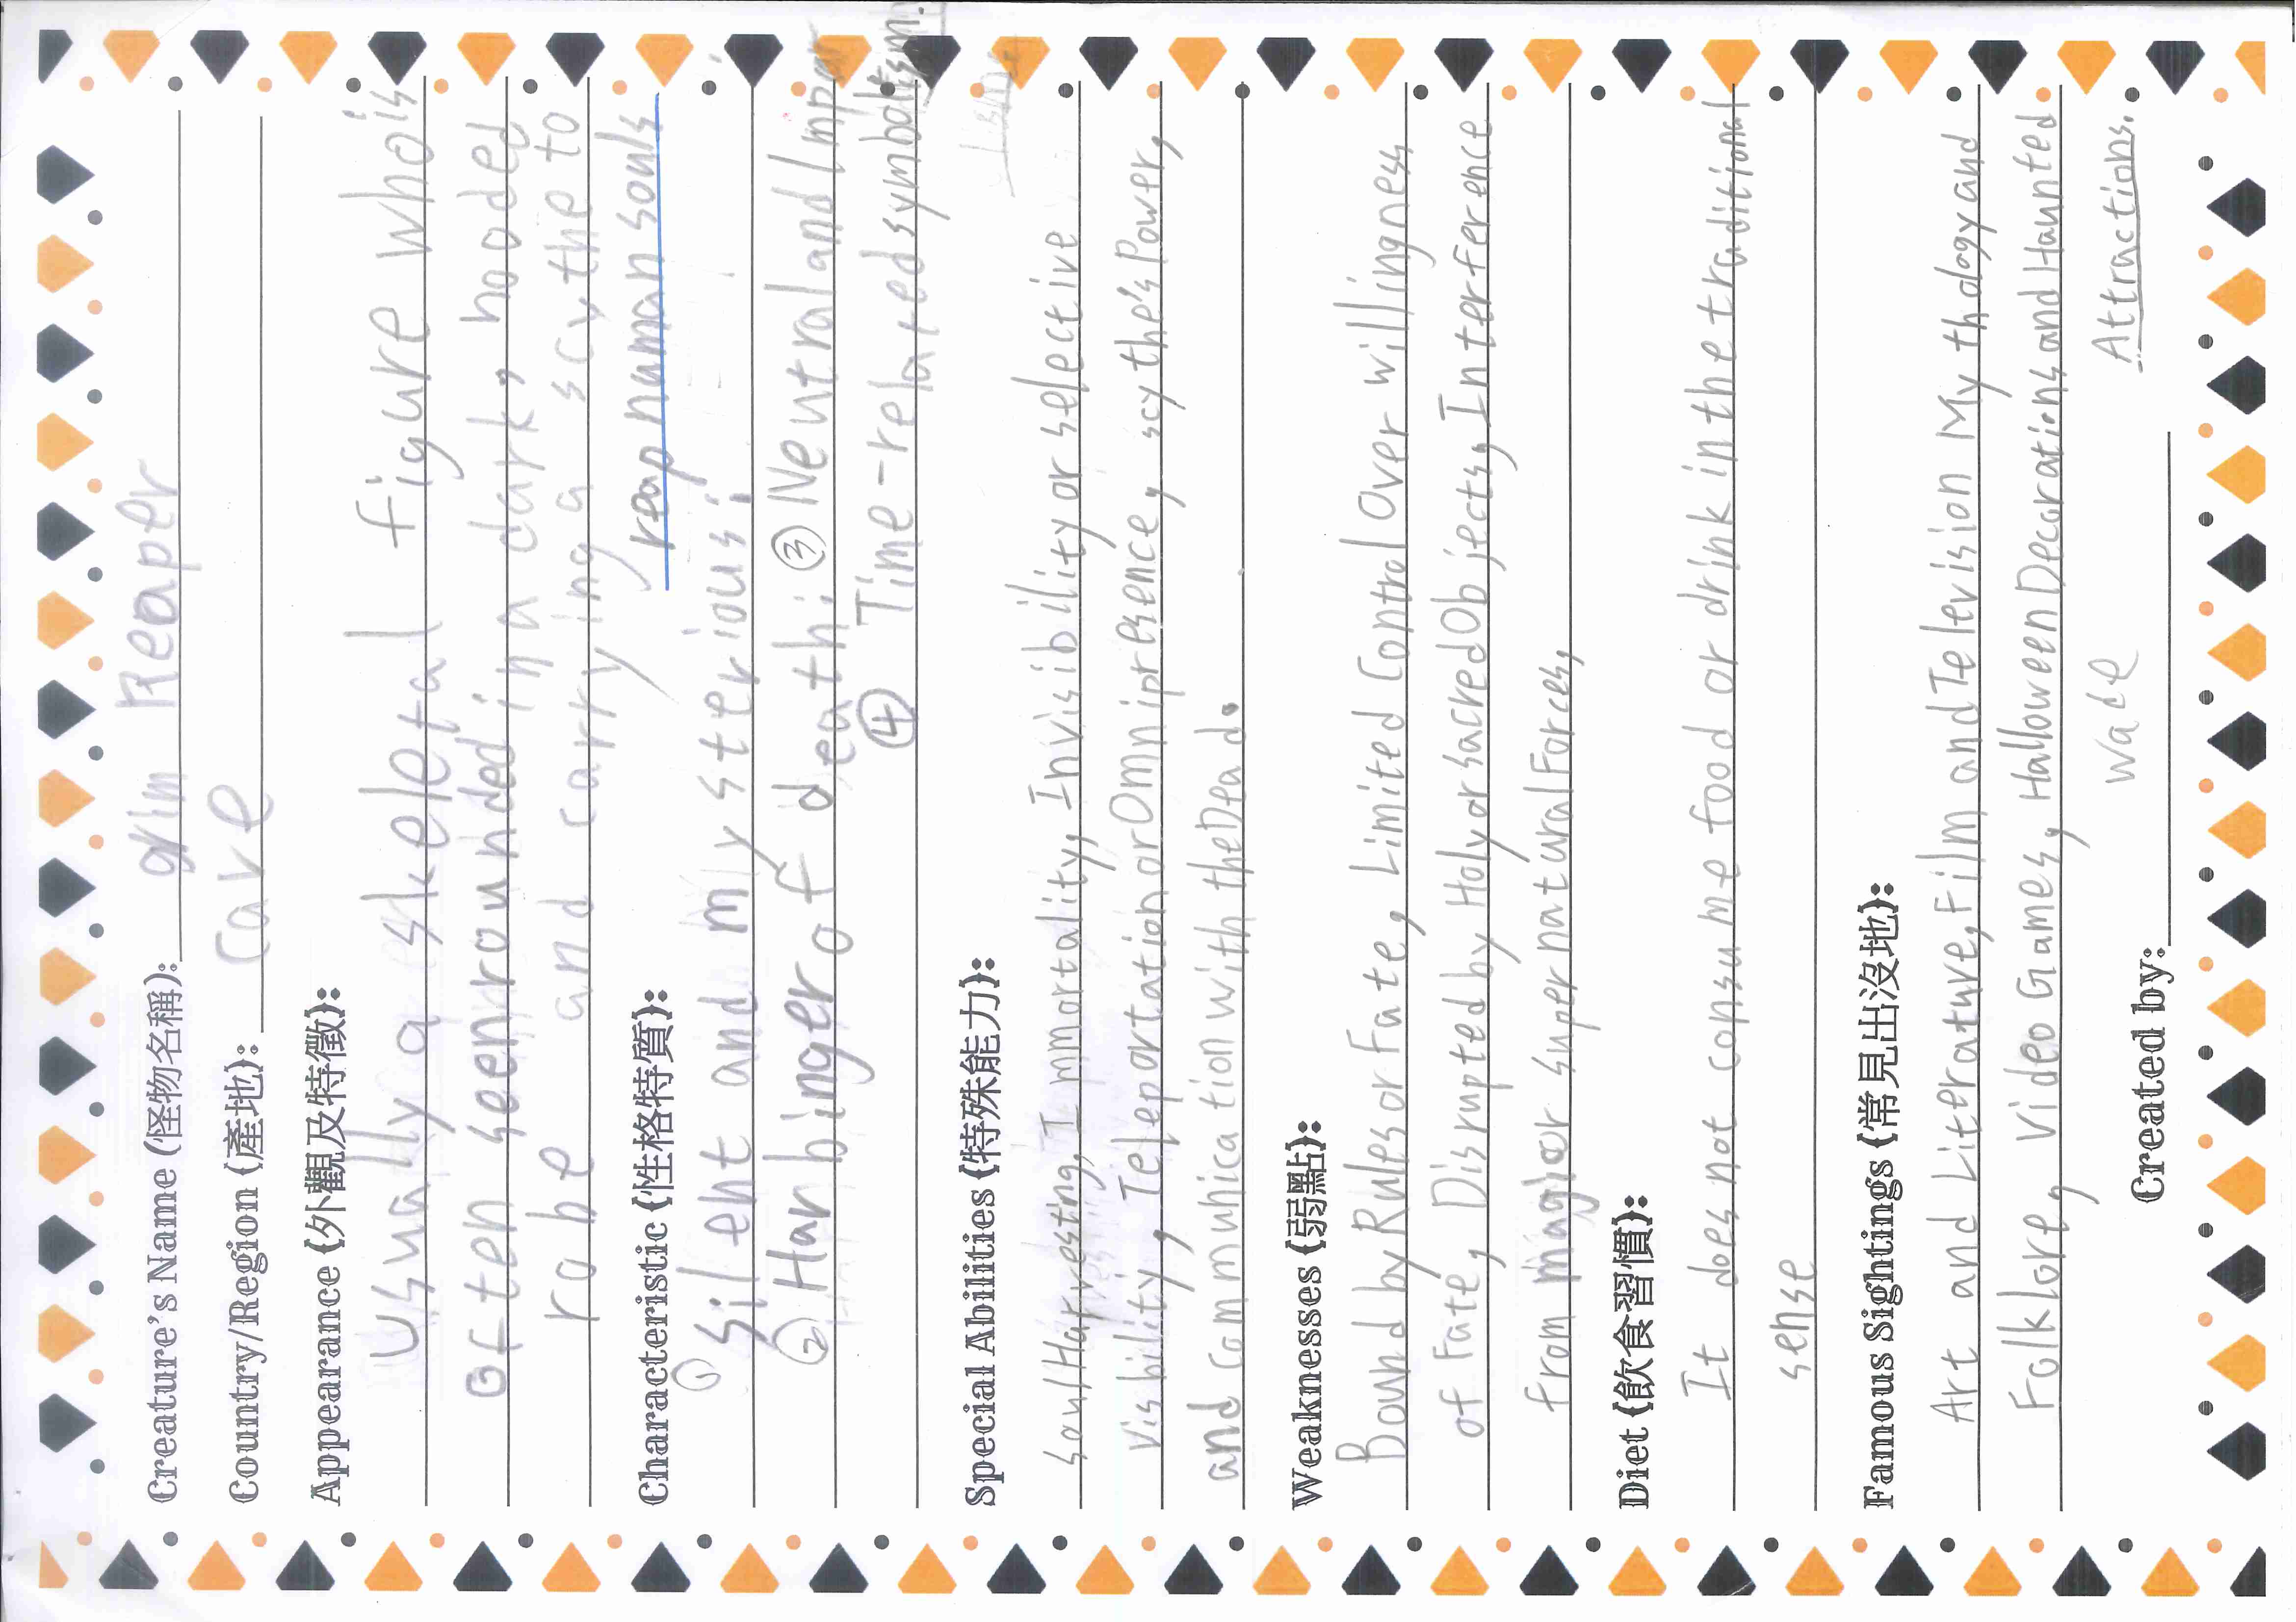 Creature's Name (怪物名稱): grim Reaper
Country/Region (產地): cave
Appearance (外觀及特徵):
Usually a skeletal figure who is
often seen rounded in a dark, hooded
robe and carrying a scythe to
reap human souls
Characteristic (性格特質):
① silent and mysterious;
② Harbinger of death; ③ Neutral and Impar
④ Time-related symbolism.
Special Abilities (特殊能力):
soul Harvesting, Immortality, Invisibility or selective
Visibility, Teleportation or Omnipresence, scythe's Power,
and Communication with the Dead.
Weaknesses (弱點):
Bound by Rules or Fate, Limited Control Over willingness
of Fate, Disrupted by Holy or sacred Objects, Interference
from magic or supernatural Forces,
Diet (飲食習慣):
It does not consume food or drink in the traditional
sense
Famous Sightings (常見出沒地):
Art and Literature, Film and Television Mythology and
Folklore, Video Games, Halloween Decorations and Haunted
Attractions.
Created by: wade